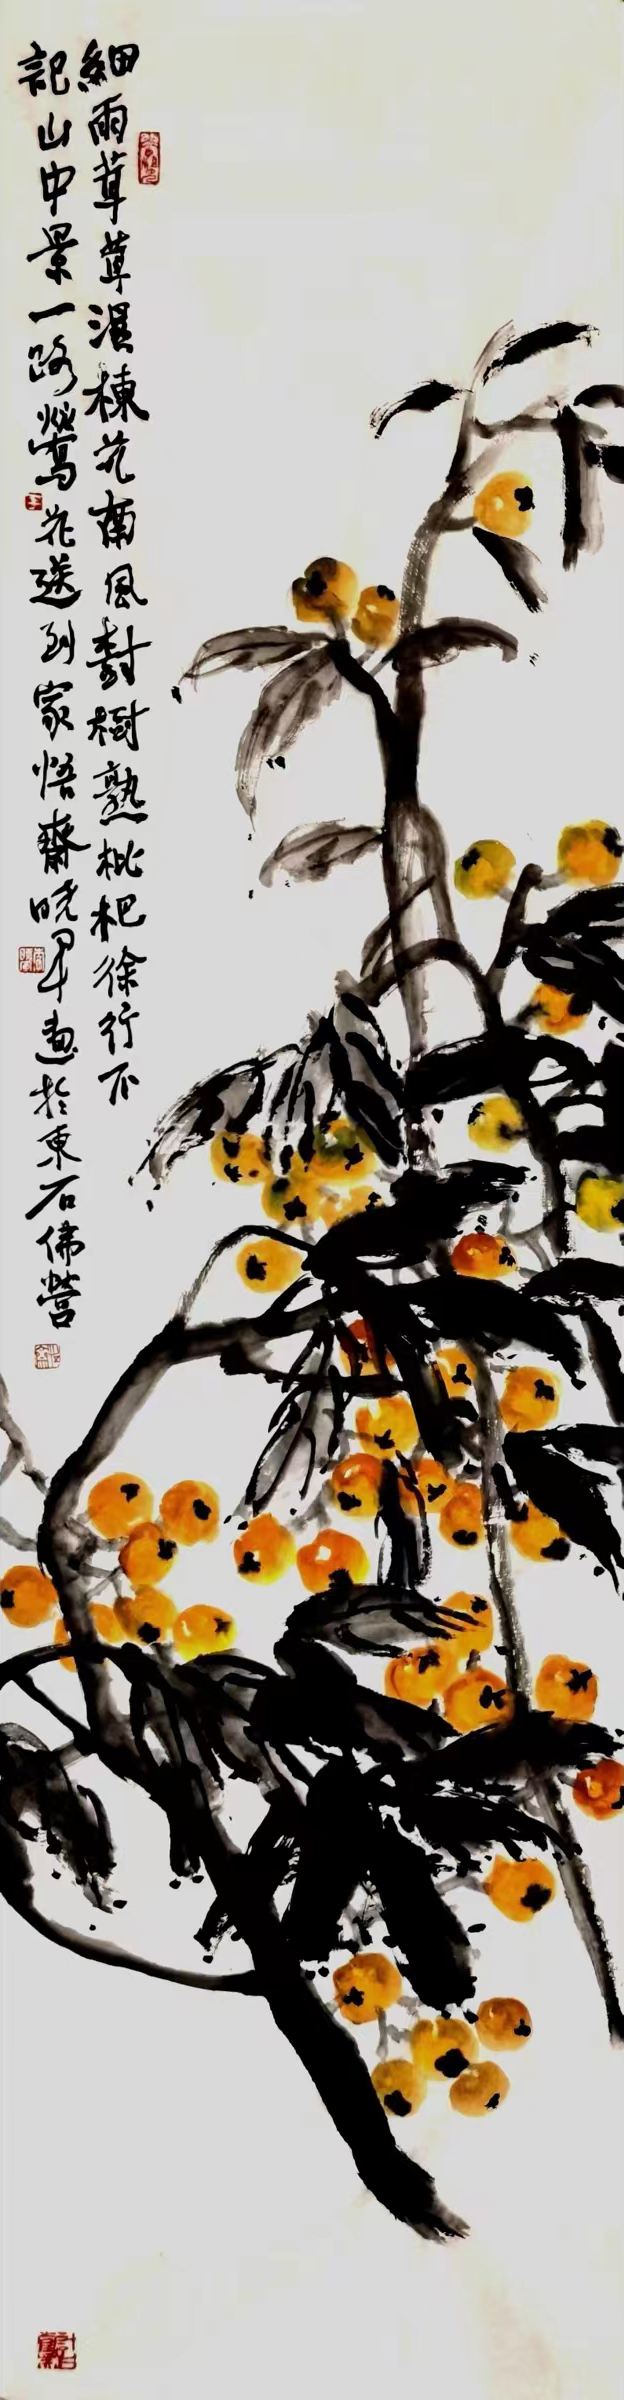 細雨茸茸湿楝花南風樹樹熟枇杷徐行不
記山中景一路鶯花送到家悟齋曉軍畫於東石佛營